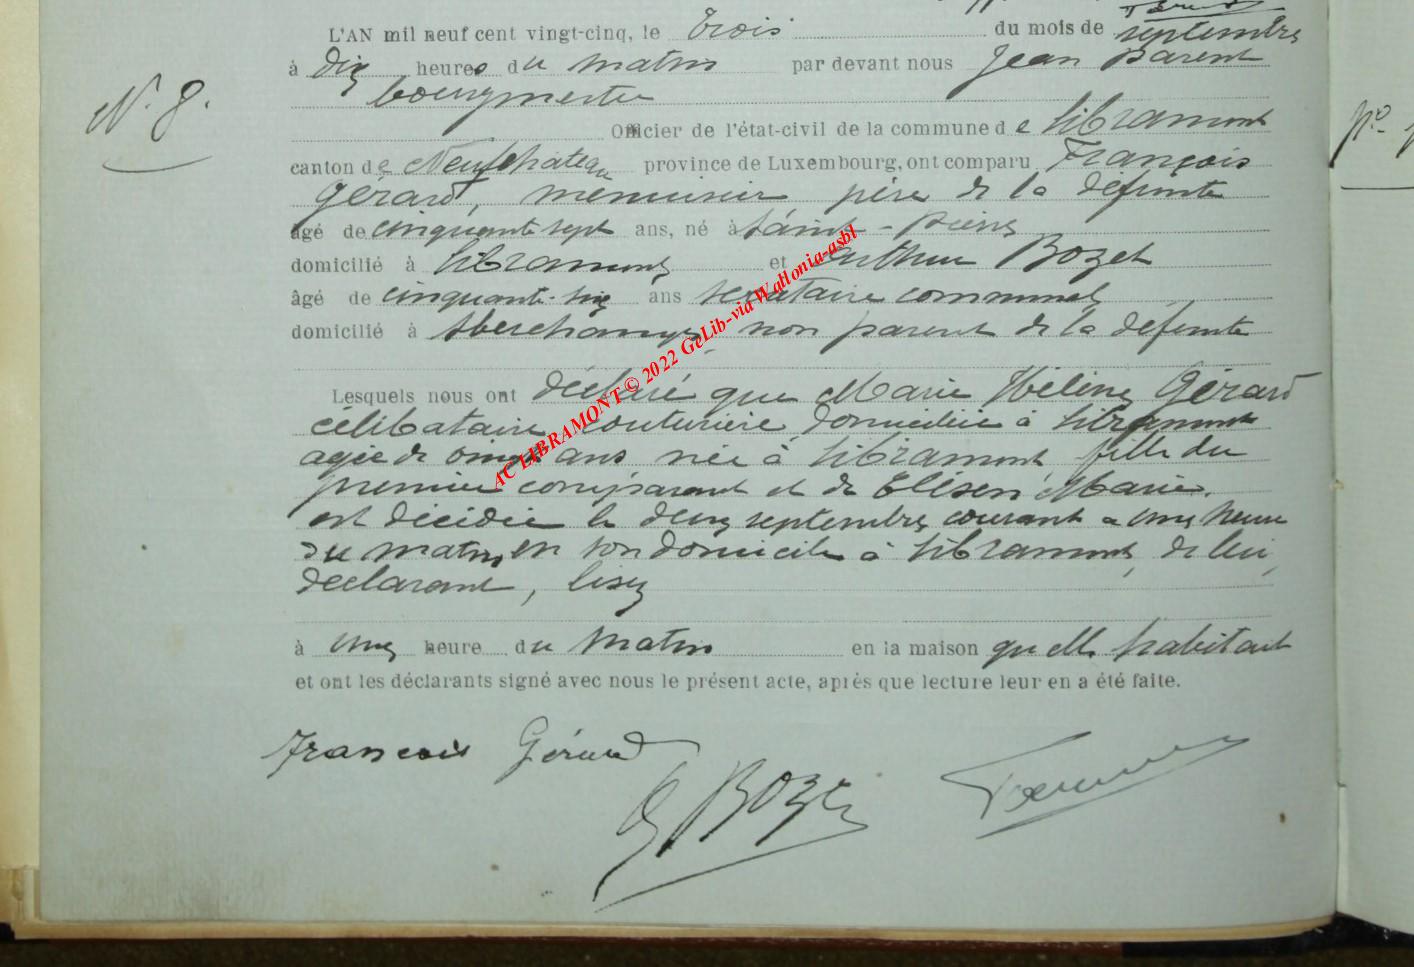 L'AN mil neuf cent vingt-cinq, le Trois du mois de septembre
à dix heures du matin par devant nous Jean Parent
bourgmestre
N° 8.
Officier de l'état-civil de la commune de Libramont
canton de Neufchateau province de Luxembourg, ont comparu François
Gérard, menuisier père de la défunte
âgé de cinquante sept ans, né à Saint-Pierre
domicilié à Libramont et Arthur Bozet
âgé de cinquante-six ans secrétaire communal,
domicilié à non parent de la défunte
Lesquels nous ont déclaré que Marie Hélène Gérard
célibataire, couturière domiciliée à Libramont
agée de vingt ans née à Libramont, fille du
premier comparant et de Marie.
est décédée le deux septembre courant a une heure
du matin en son domicile à Libramont, de lui,
déclarant, lisez
à une heure du matin en la maison qu'elle habitait
et ont les déclarants signé avec nous le présent acte, après que lecture leur en a été faite.
François Gérard
Bozet
AC LIBRAMONT © 2022 GeLib-via Wallonia-asbl
N°